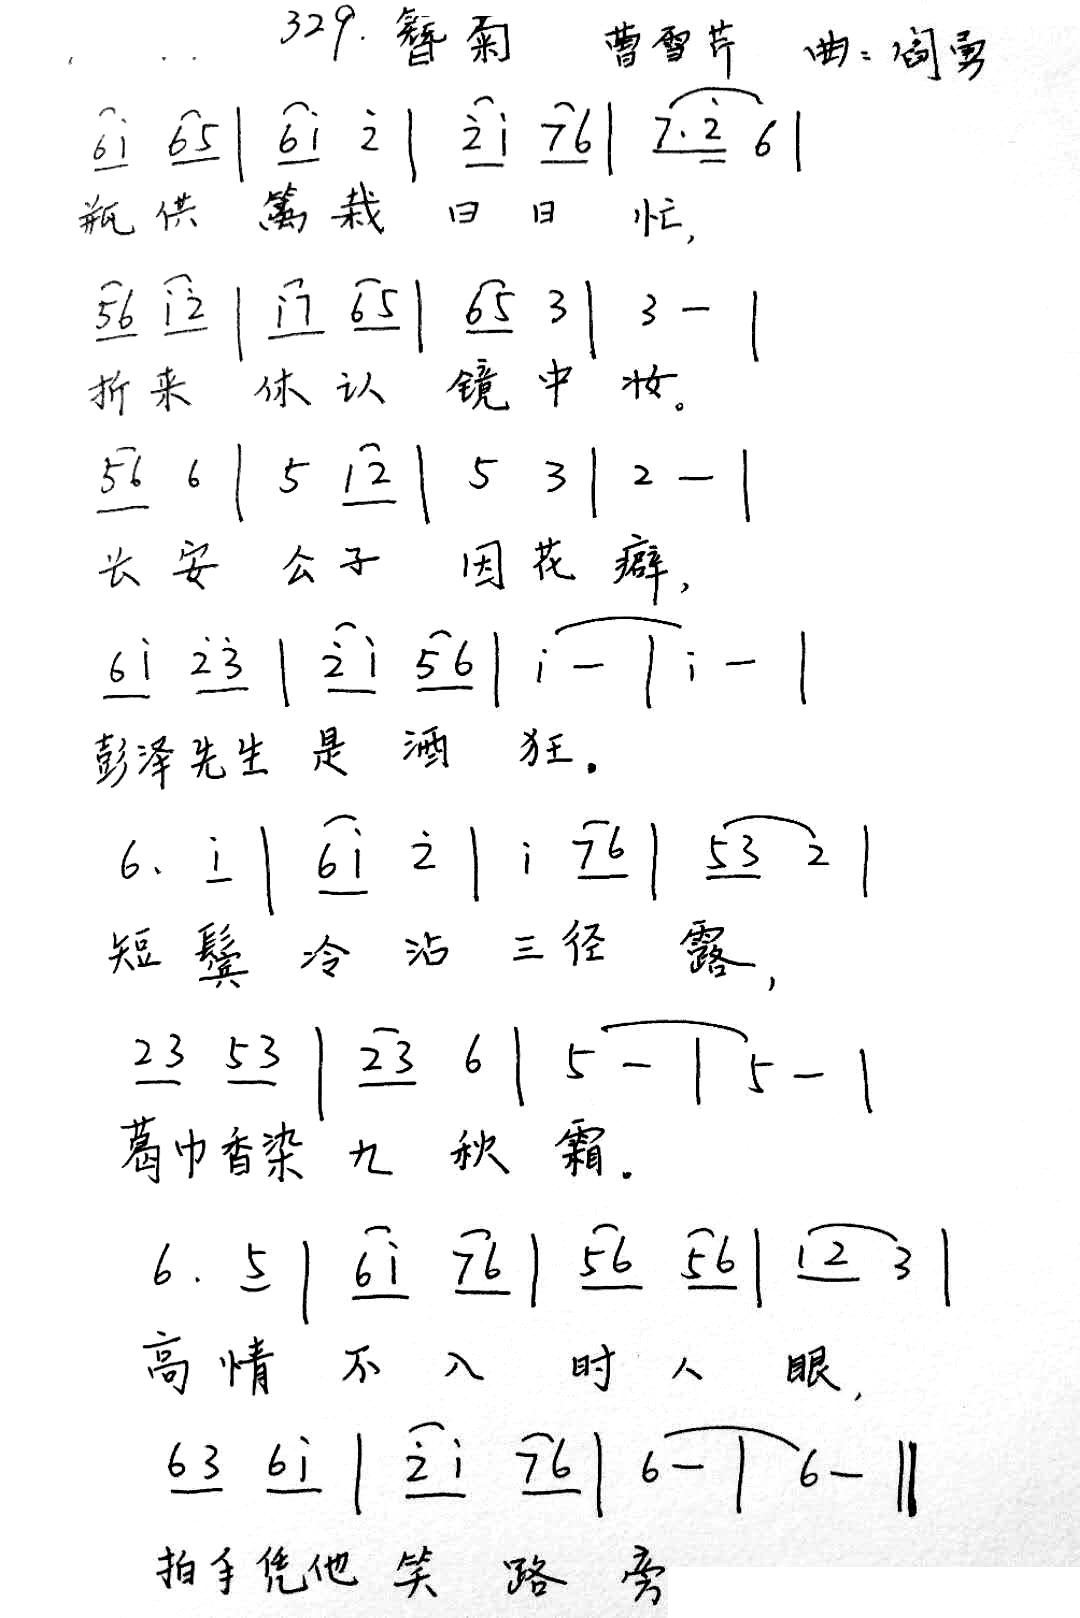 329. 簪菊 曹雪芹 曲：阎勇
6i 65 | 6i 2̇ | 2̇i 76 | 7.2̇ 6 |
瓶供 篱栽 日日 忙，
56 i2̇ | i7 65 | 65 3 | 3 - |
折来 休认 镜中 妆。
56 6 | 5 12 | 5 3 | 2 - |
长安 公子 因花癖，
6i 2̇3̇ | 2̇i 56 | i - | i - |
彭泽先生 是 酒 狂.
6. i | 6i 2̇ | i 76 | 53 2 |
短鬓 冷 沾 三径 露，
23 53 | 23 6 | 5 - | 5 - |
葛巾香染 九 秋 霜.
6. 5 | 6i 76 | 56 56 | 12 3 |
高情 不入 时人 眼，
63 6i | 2̇i 76 | 6 - | 6 - ‖
拍手凭他 笑 路 旁